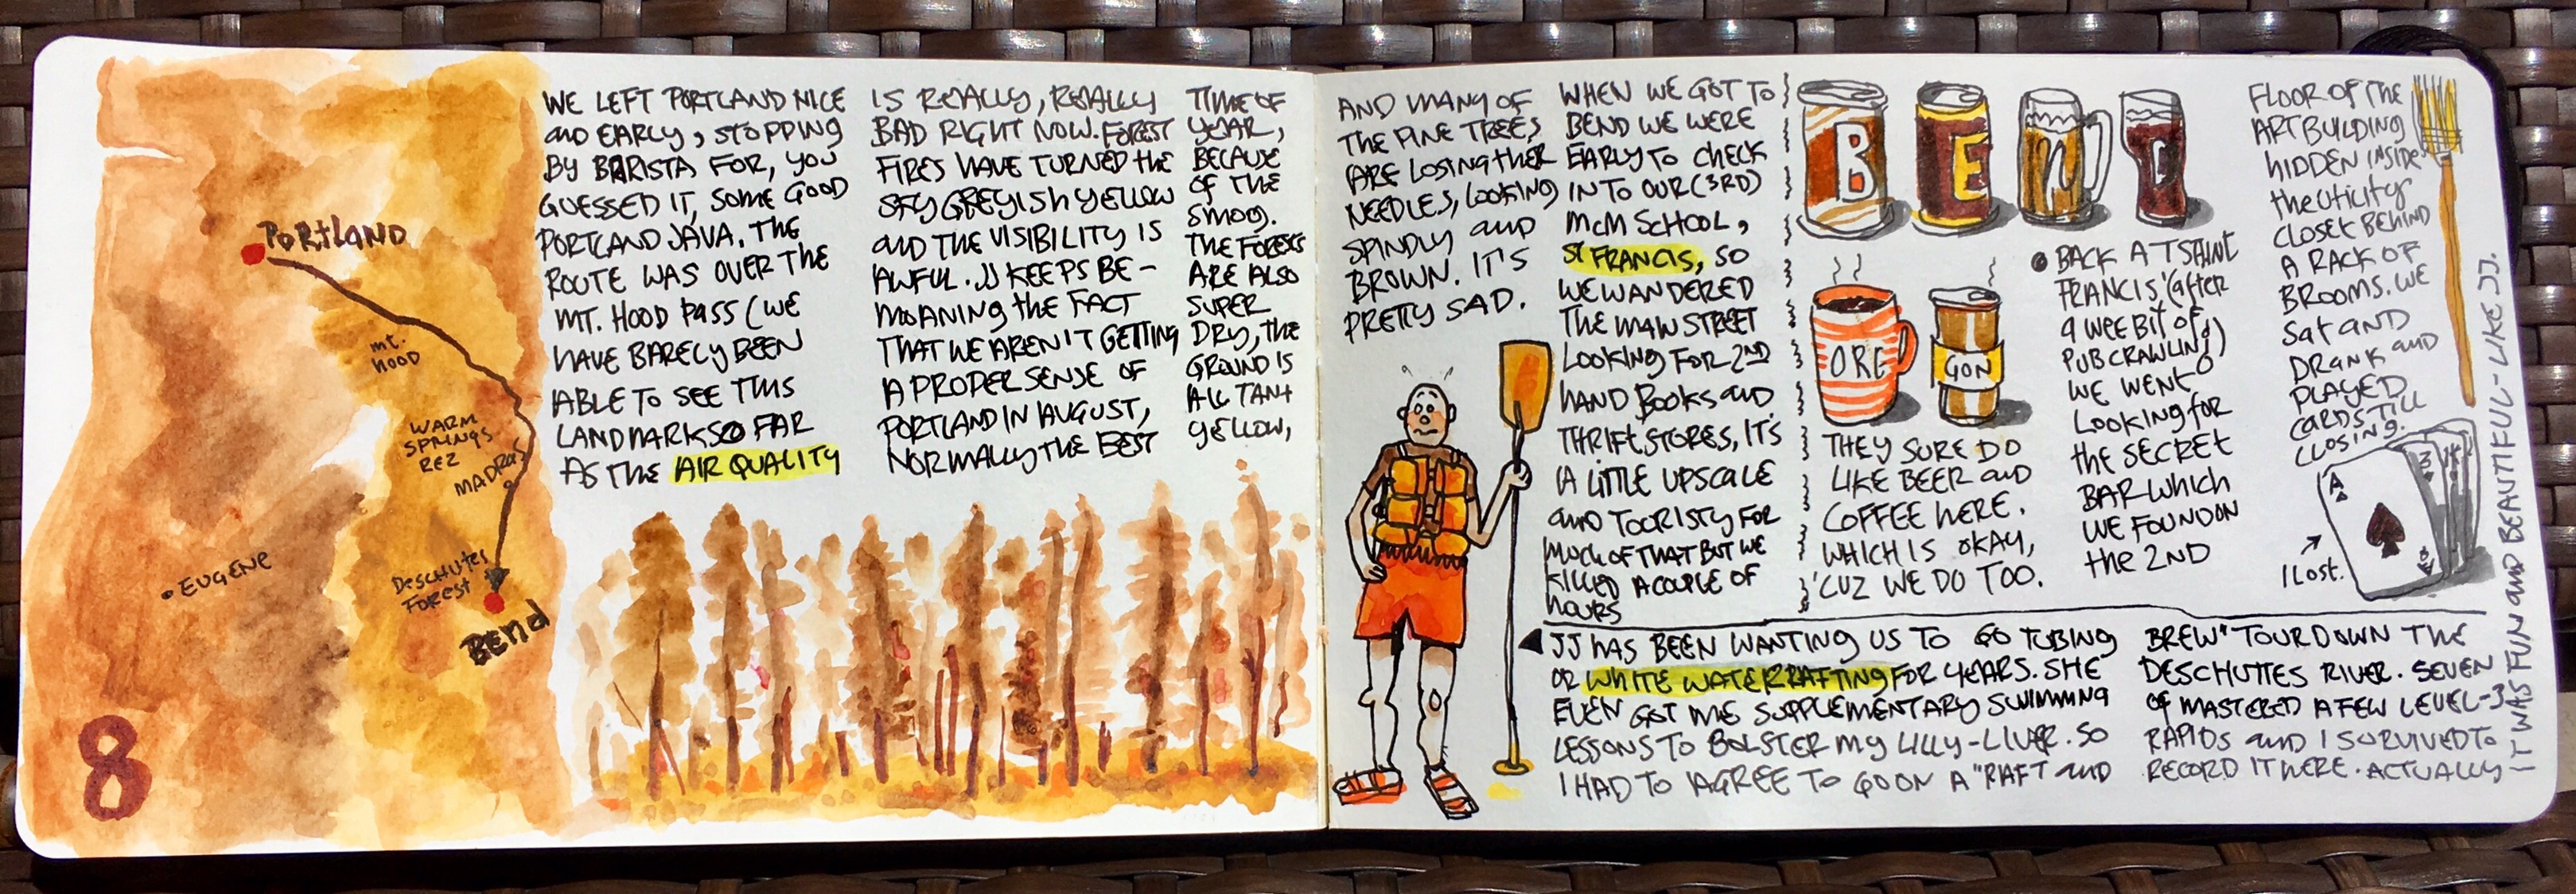 Portland
mt.
Hood
WARM
SPRINGS
REZ
MADRAS
EUGENE
Deschutes
Forest
BEND
8
WE LEFT PORTLAND NICE
AND EARLY, STOPPING
BY BARISTA FOR, YOU
GUESSED IT, SOME GOOD
PORTLAND JAVA. THE
ROUTE WAS OVER THE
MT. HOOD PASS (WE
HAVE BARELY BEEN
ABLE TO SEE THIS
LANDMARK SO FAR
AS THE AIR QUALITY
IS REALLY, REALLY
BAD RIGHT NOW. FOREST
FIRES HAVE TURNED THE
SKY GREYISH YELLOW
AND THE VISIBILITY IS
AWFUL. JJ KEEPS BE-
MOANING THE FACT
THAT WE AREN'T GETTING
A PROPER SENSE OF
PORTLAND IN AUGUST,
NORMALLY THE BEST
TIME OF
YEAR,
BECAUSE
OF THE
SMOG.
THE FORESTS
ARE ALSO
SUPER
DRY, THE
GROUND IS
ALL TAN +
YELLOW,
AND MANY OF
THE PINE TREES
ARE LOSING THER
NEEDLES, LOOKING
SPINDLY AND
BROWN. IT'S
PRETTY SAD.
WHEN WE GOT TO
BEND WE WERE
EARLY TO CHECK
INTO OUR (3RD)
MCM SCHOOL,
ST FRANCIS, SO
WE WANDERED
THE MAIN STREET
LOOKING FOR 2ND
HAND BOOKS AND
THRIFT STORES, IT'S
A LITTLE UPSCALE
AND TOORISTY FOR
MUCH OF THAT BUT WE
KILLED A COUPLE OF
HOURS
B E N D
ORE GON
THEY SURE DO
LIKE BEER AND
COFFEE HERE.
WHICH IS OKAY,
'CUZ WE DO TOO.
BACK AT SAINT
FRANCIS (after
a wee bit of
PUB CRAWLING)
WE WENT
LOOKING FOR
THE SECRET
BAR WHICH
WE FOUND ON
THE 2ND
FLOOR OF THE
ART BUILDING
HIDDEN INSIDE
THE UTILITY
CLOSET BEHIND
A RACK OF
BROOMS. WE
SAT AND
DRANK AND
PLAYED
CARDS TILL
CLOSING.
A
3
I LOST.
JJ HAS BEEN WANTING US TO GO TUBING
OR WHITE WATER RAFTING FOR YEARS. SHE
EVEN GOT ME SUPPLEMENTARY SWIMMING
LESSONS TO BOLSTER MY LILLY-LIVER. SO
I HAD TO AGREE TO GO ON A "RAFT AND
BREW" TOUR DOWN THE
DESCHUTES RIVER. SEVEN
OF MASTERED A FEW LEVEL-3
RAPIDS AND I SURVIVED TO
RECORD IT HERE. ACTUALLY
IT WAS FUN AND BEAUTIFUL - LIKE JJ.